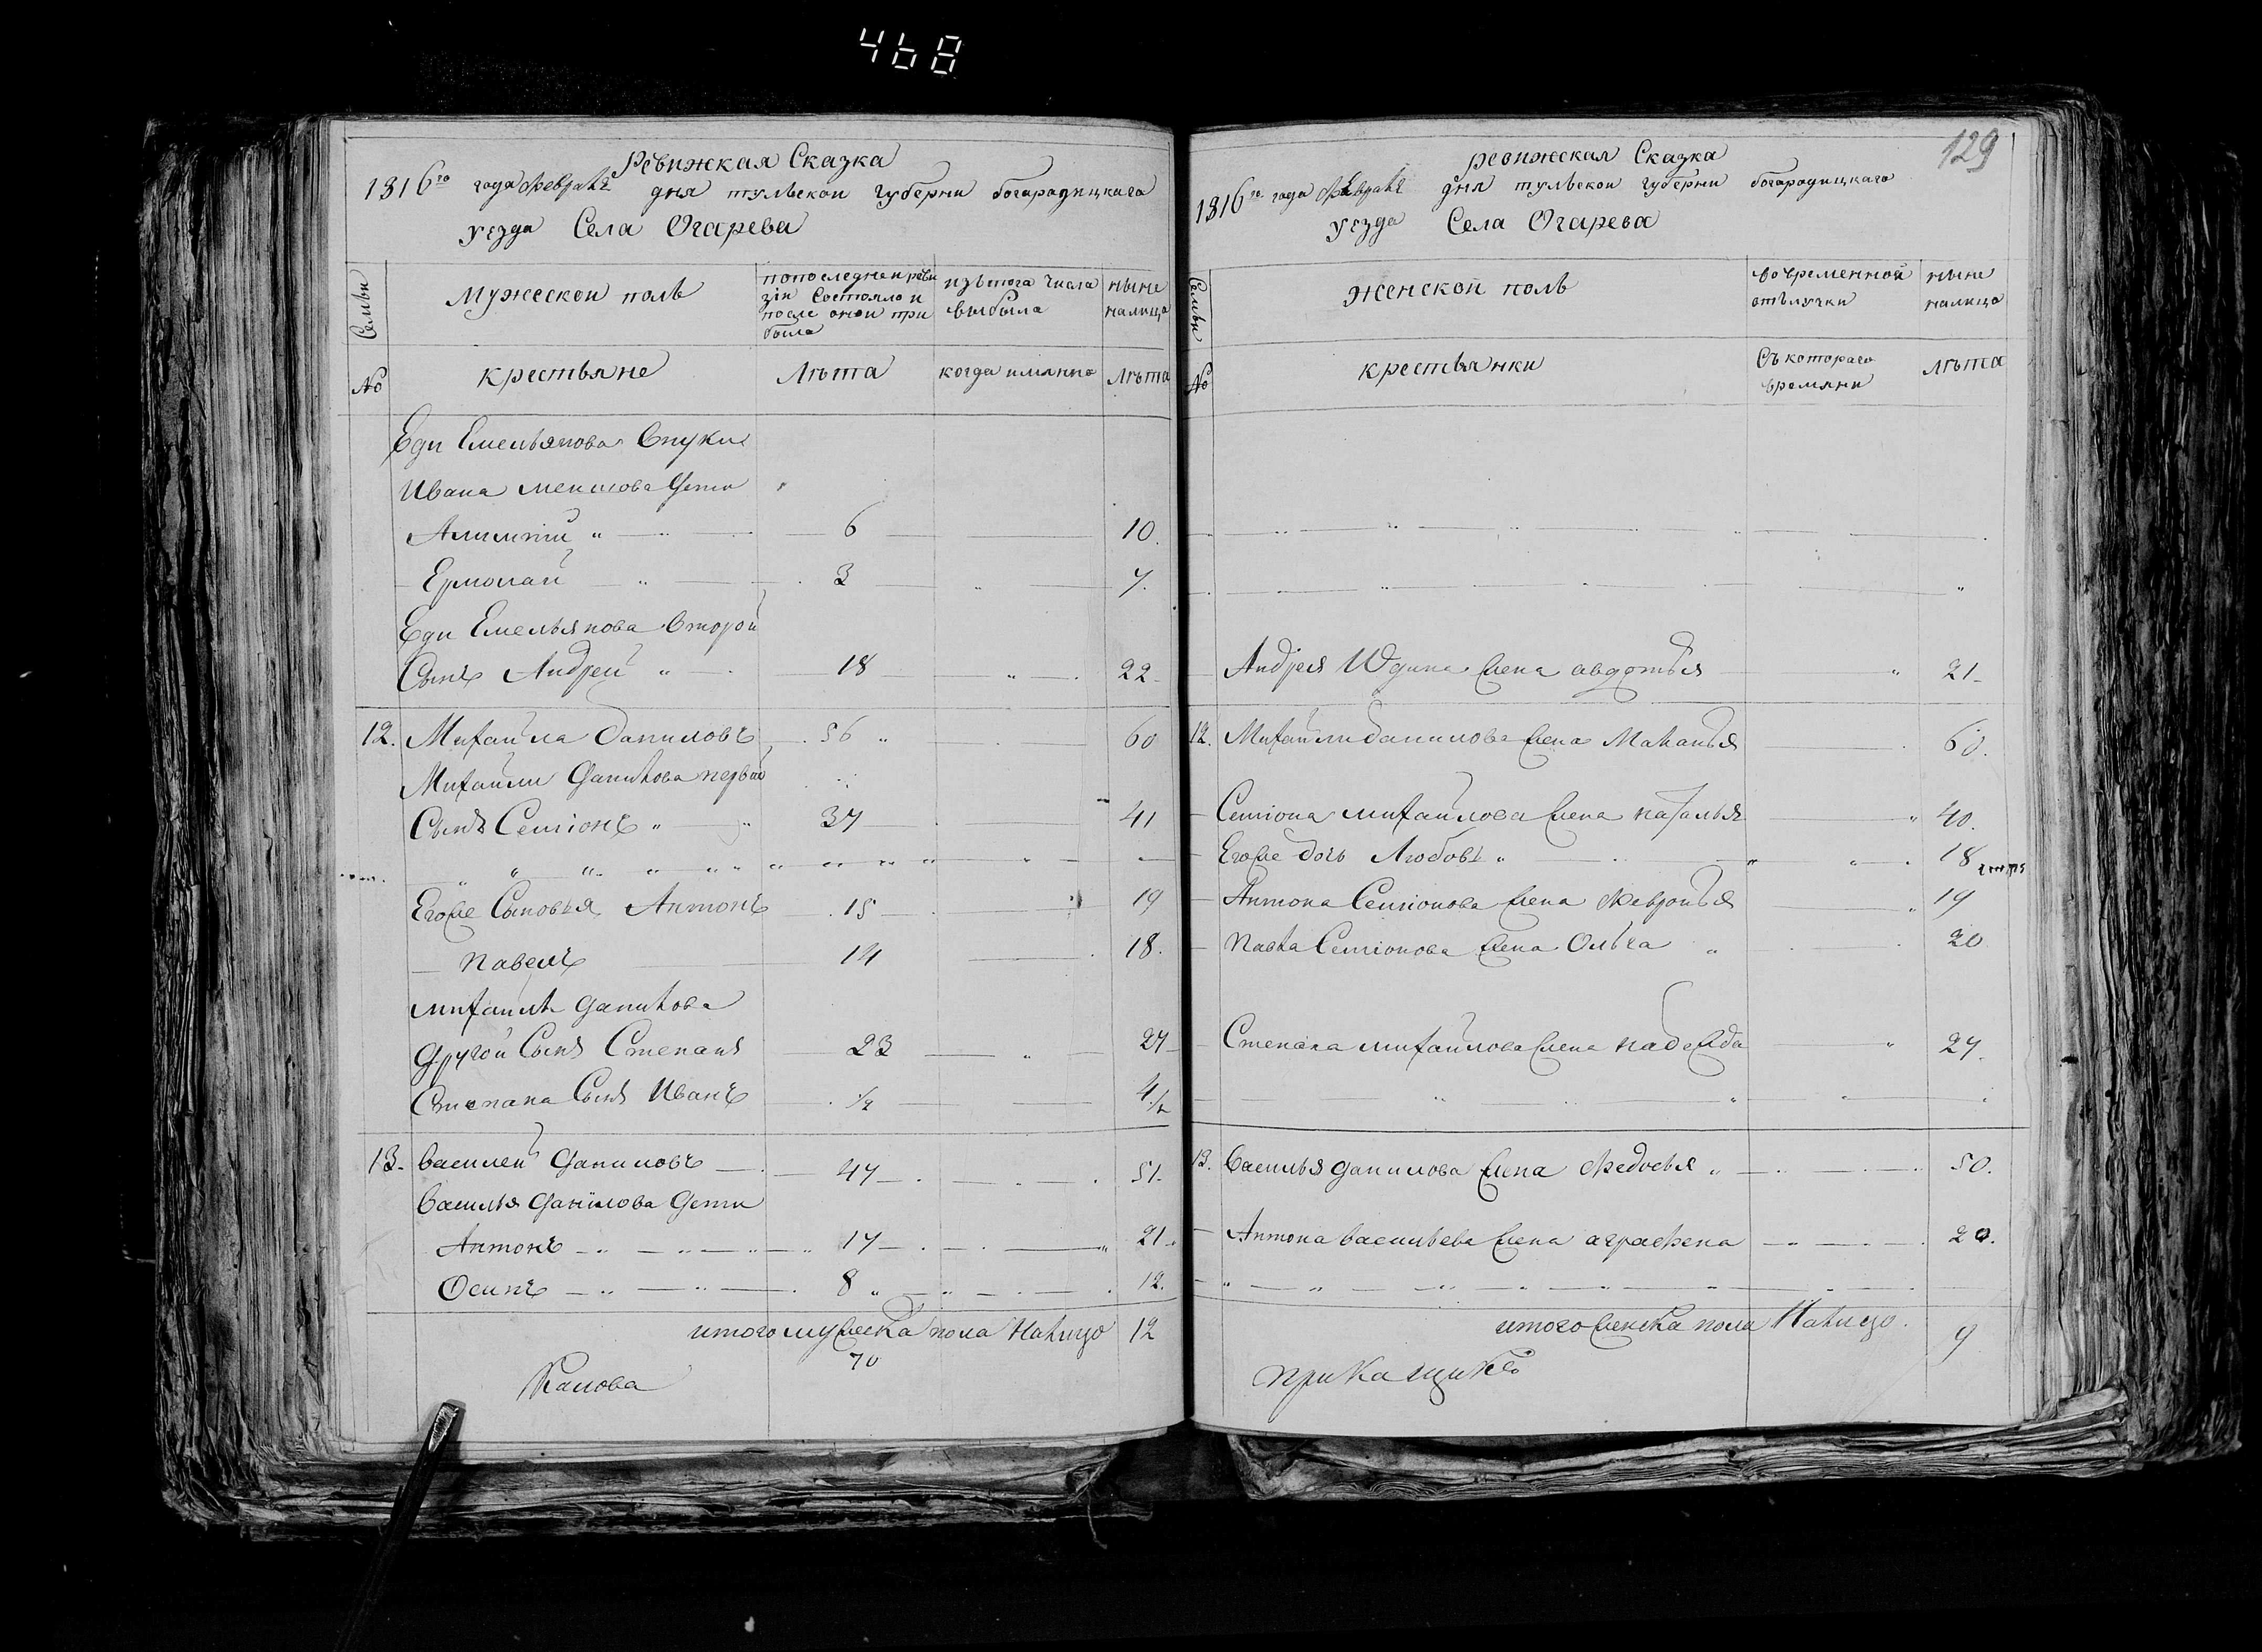 468
Ревижская Сказка
1816го года февраля дня тульской губерни богародицкаго
уезда Села Огарева
Семьи
Мужеской полъ
попоследней реви
зiи Состояло и
после оной при
было
изътого числа
выбыла
ныне
налицо
№
крестьяне
Лѣта
когда имянно
Лѣта
Еди Емельянова Внуки
Ивана меншова Дети
Алимпiй 6 10.
Ермолай 3 7.
Еди Емельянова Второй
Сынъ Андрей 18 22
12. Михайла Даниловъ 56 60
Михайли Данилова первой
Сынъ Семiонъ 37 41
Егоже Сыновья Антонъ 15 19
павелъ 14 18.
михайлы Данилова
Другой Сынъ Степанъ 23 27
Степана Сынъ Иванъ 1/2 4 1/2
13. Василей Даниловъ 47 51.
Василья Данилова Дети
Антонъ 17 21
Осипъ 8 12.
итого мужеска пола Налицо 12
70
129
ревижская Сказка
1816го года февраля дня тульской губерни богародицкаго
уезда Села Огарева
Семьи
женской полъ
вовременной
отълучки
ныне
налицо
№
крестьянки
Съ котораго
времяни
лѣта
Андрея Юдина жена авдотья 21
12. Михайли данилова жена Маланья 60.
Семiона михайлова жена наталья 40.
Егоже дочь Любовь 18
Антона Семiонова жена февронья 19
павла Семiонова жена Ольга 20
Степана михайлова жена надежда 27.
13. Василья данилова жена федосья 50.
Антона васильева жена аграфена 20.
итого женска пола Налицо. 9
прикащикъ